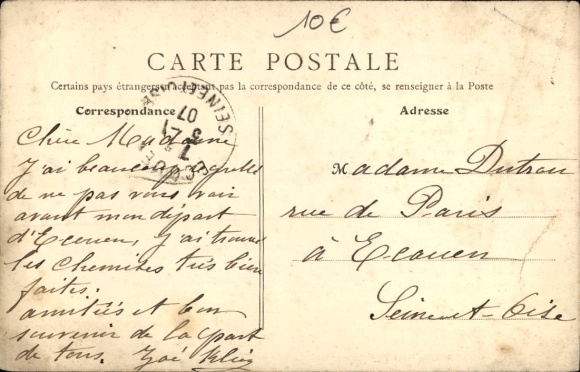 10€
CARTE POSTALE
Certains pays étrangers n'acceptant pas la correspondance de ce côté, se renseigner à la Poste
Correspondance
Adresse
SEINE-ET-OISE
07
Chère Madame
J'ai beaucoup regretté
de ne pas vous voir
avant mon départ
d'Ecouen, J'ai trouvé
les chemises très bien
faites.
amitiés et bon
souvenir de la part
de tous. Zoé
Madame Dutrou
rue de Paris
à Ecouen
Seine-et-Oise